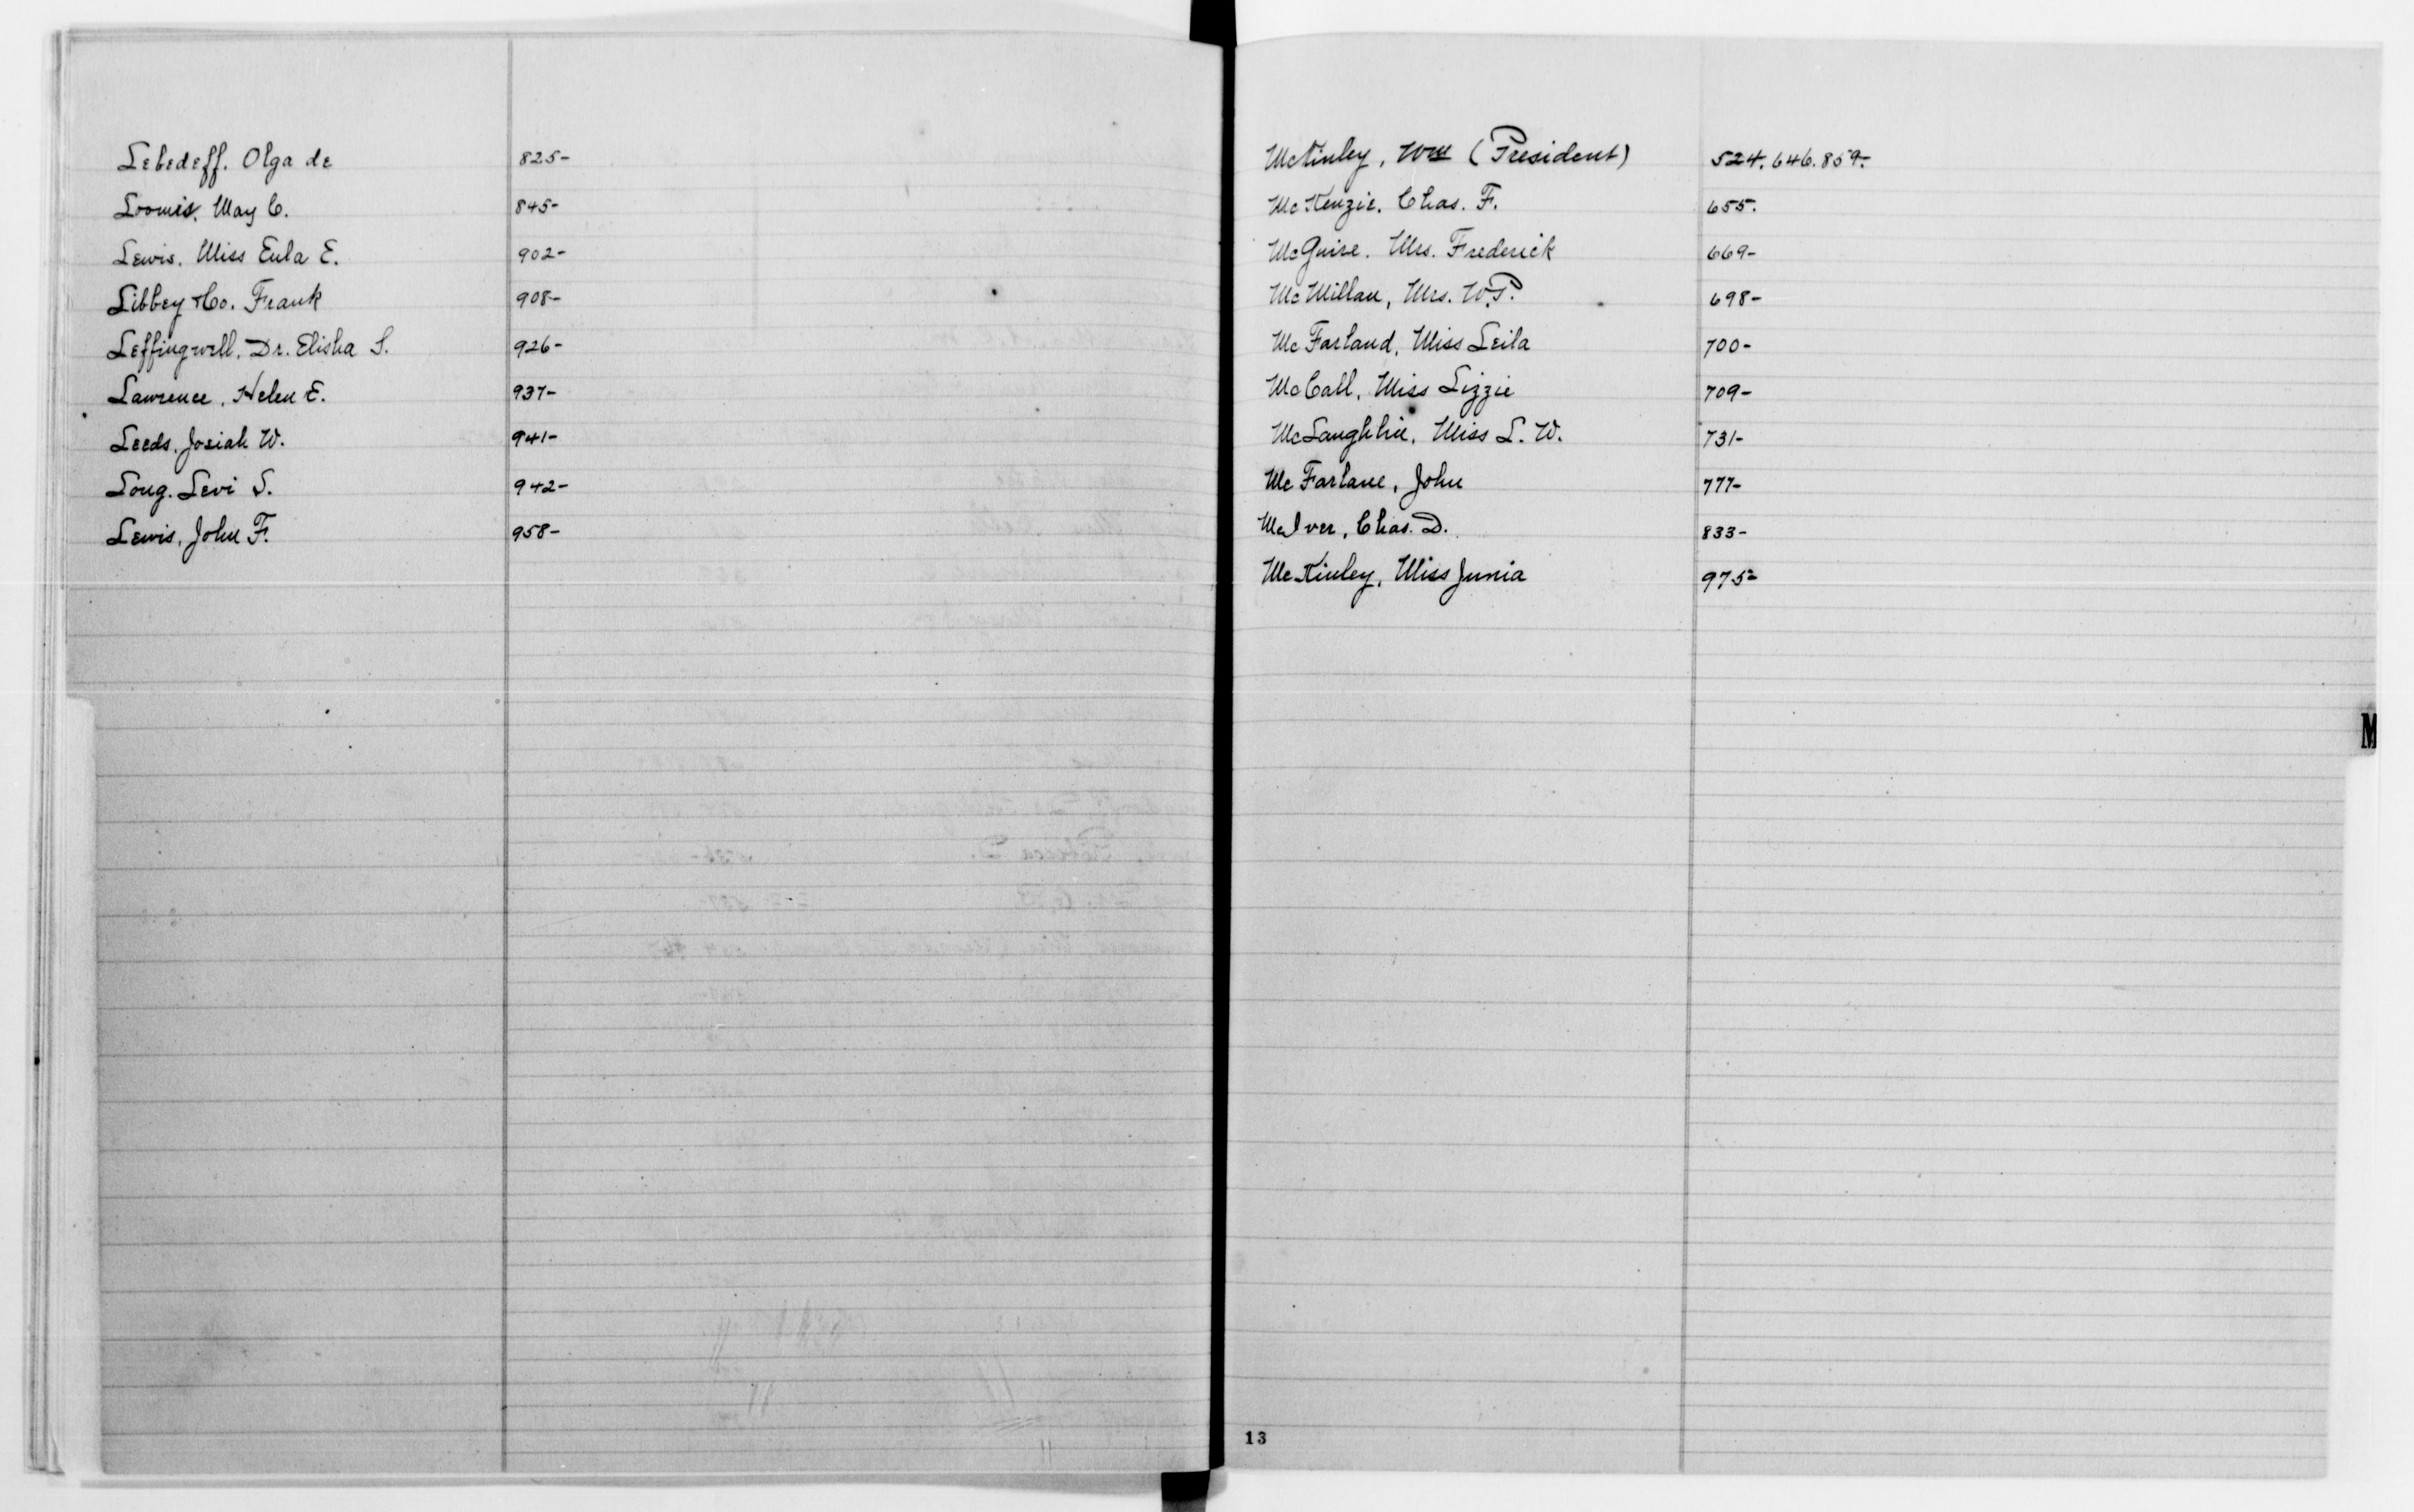 Lebedeff. Olga de 825-
Loomis. May C. 845-
Lewis. Miss Eula E. 902-
Libbey & Co. Frank 908-
Leffingwell, Dr. Elisha S. 926-
Lawrence, Helen E. 937-
Leeds, Josiah W. 941-
Long. Levi S. 942-
Lewis, John F. 958-
McKinley, Wm (President) 524. 646. 859-
McKenzie. Chas. F. 655.
McGuire. Mrs. Frederick 669-
McMillan, Mrs. W.P. 698-
McFarland, Miss Leila 700-
McCall, Miss Lizzie 709-
McLaughlin, Miss L. W. 731-
McFarlane, John 777-
McIver, Chas. D. 833-
McKinley, Miss Junia 975-
M
13